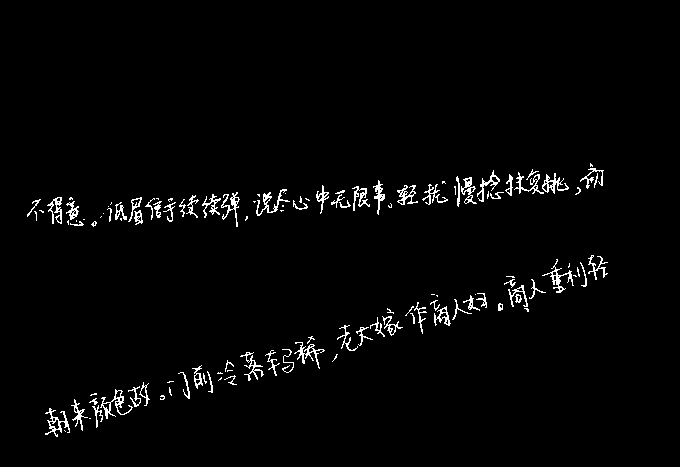 不得意。低眉信手续续弹,说尽心中无限事。轻拢慢捻抹复挑,初
朝来颜色故。门前冷落车马稀,老大嫁作商人妇。商人重利轻